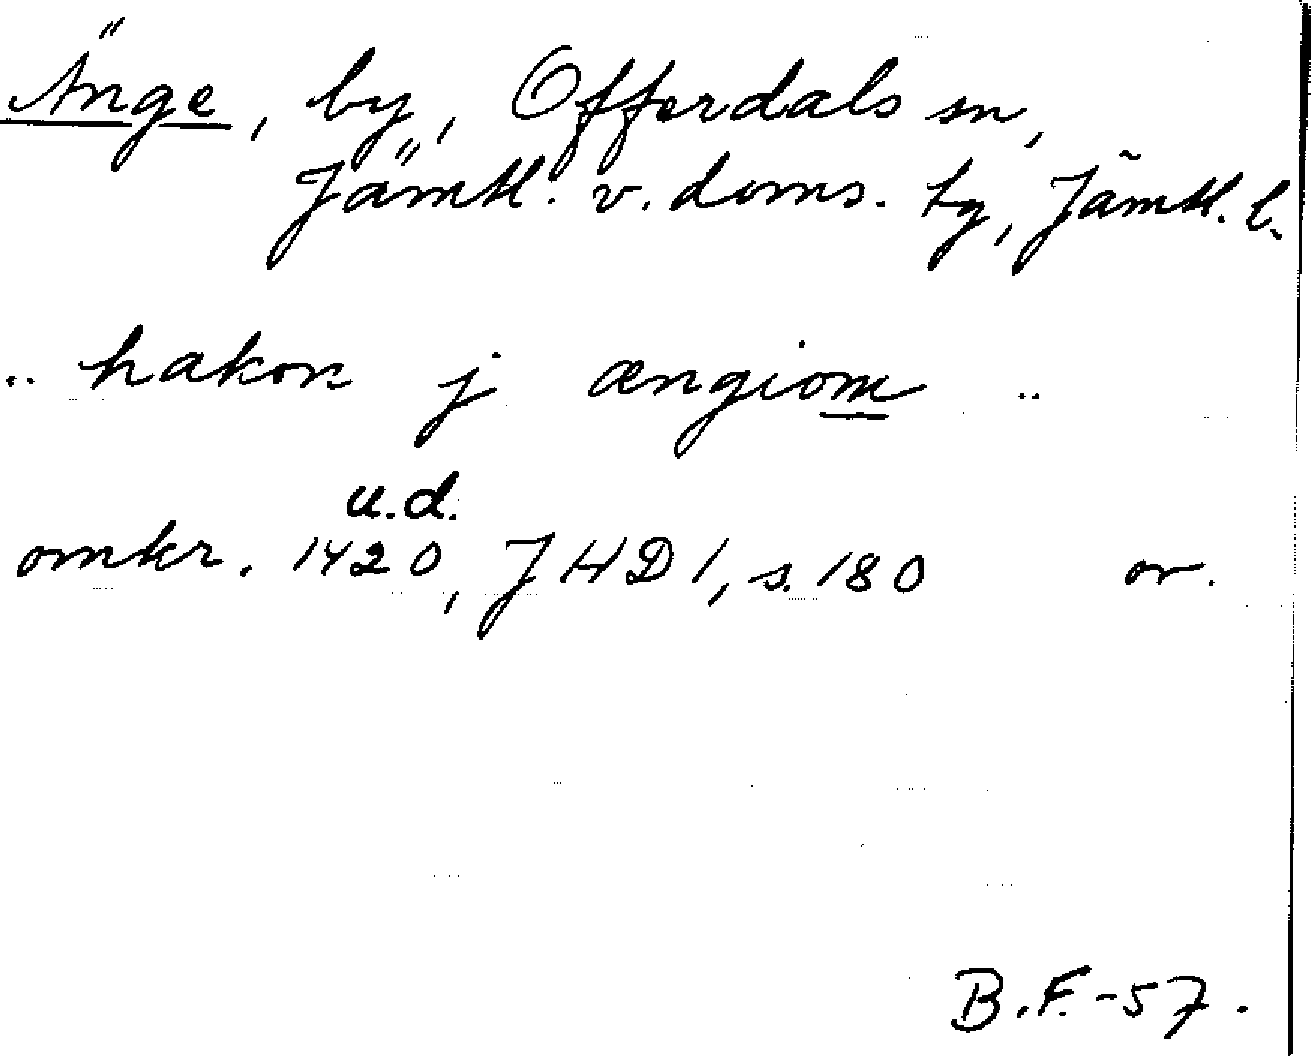 Änge, by, Offerdals sn,
Jämtl. v. doms. tg, Jämtl. l.
.. hakon j ængiom ..
u.d.
omkr. 1420, JHD 1, s. 180 or.
B.F.-57.